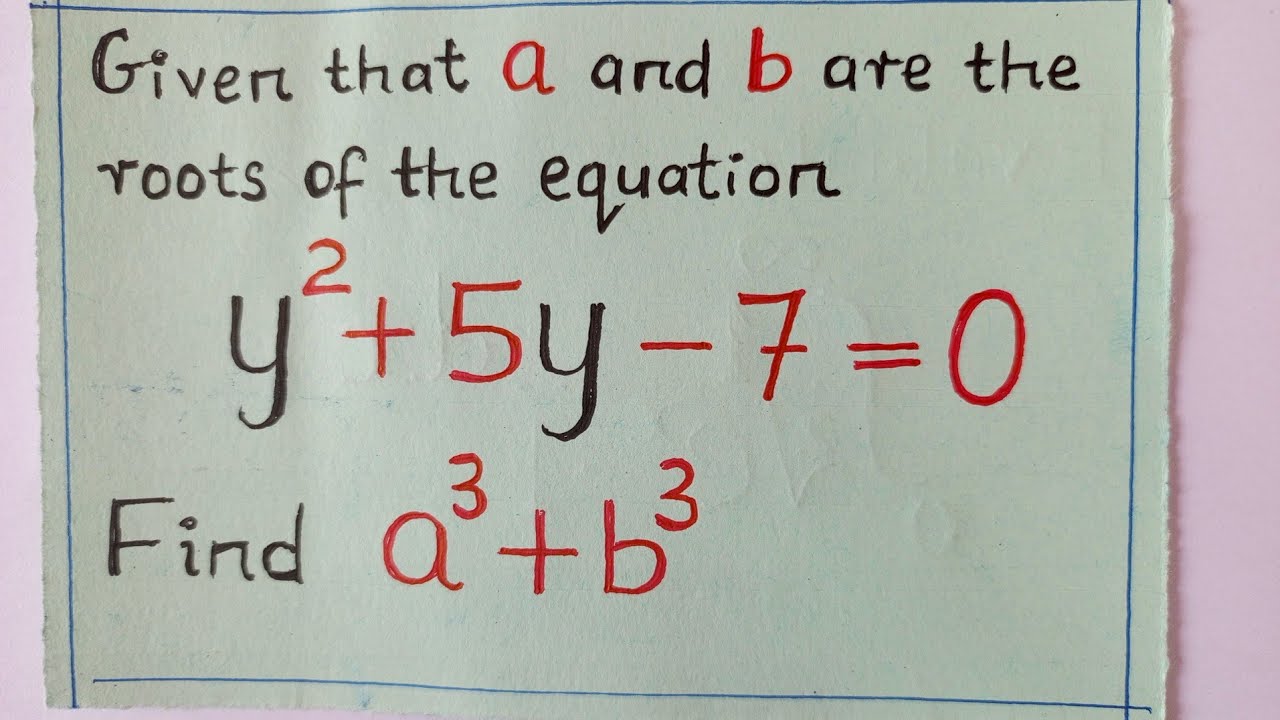 Given that a and b are the
roots of the equation
y²+5y-7=0
Find a³+b³